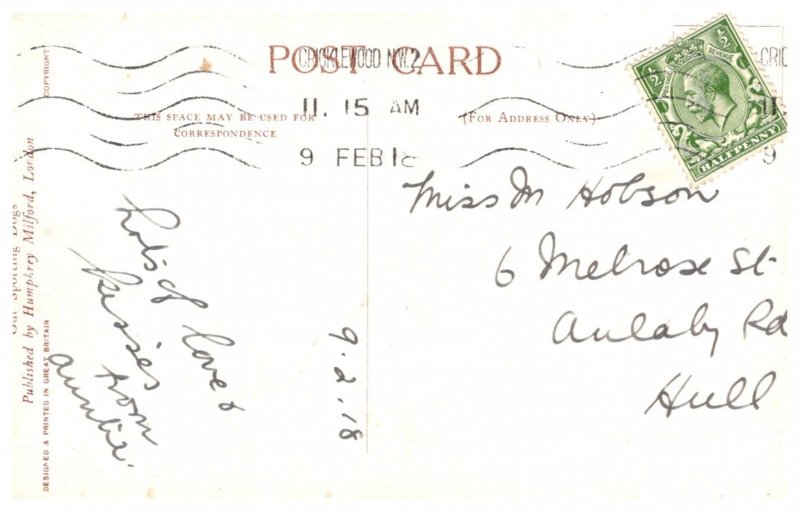 POST CARD
THIS SPACE MAY BE USED FOR
CORRESPONDENCE
(FOR ADDRESS ONLY)
CRICKLEWOOD N.W.2
11. 15 AM
9 FEB 18
CRIC
11
9
½ ½
POSTAGE REVENUE
HALFPENNY
Miss M Hobson
6 Melrose St-
Anlaby Rd
Hull
lots of love &
kisses
from
auntie.
9.2.18
COPYRIGHT
Our Sporting Dogs
Published by Humphrey Milford, London
DESIGNED & PRINTED IN GREAT BRITAIN